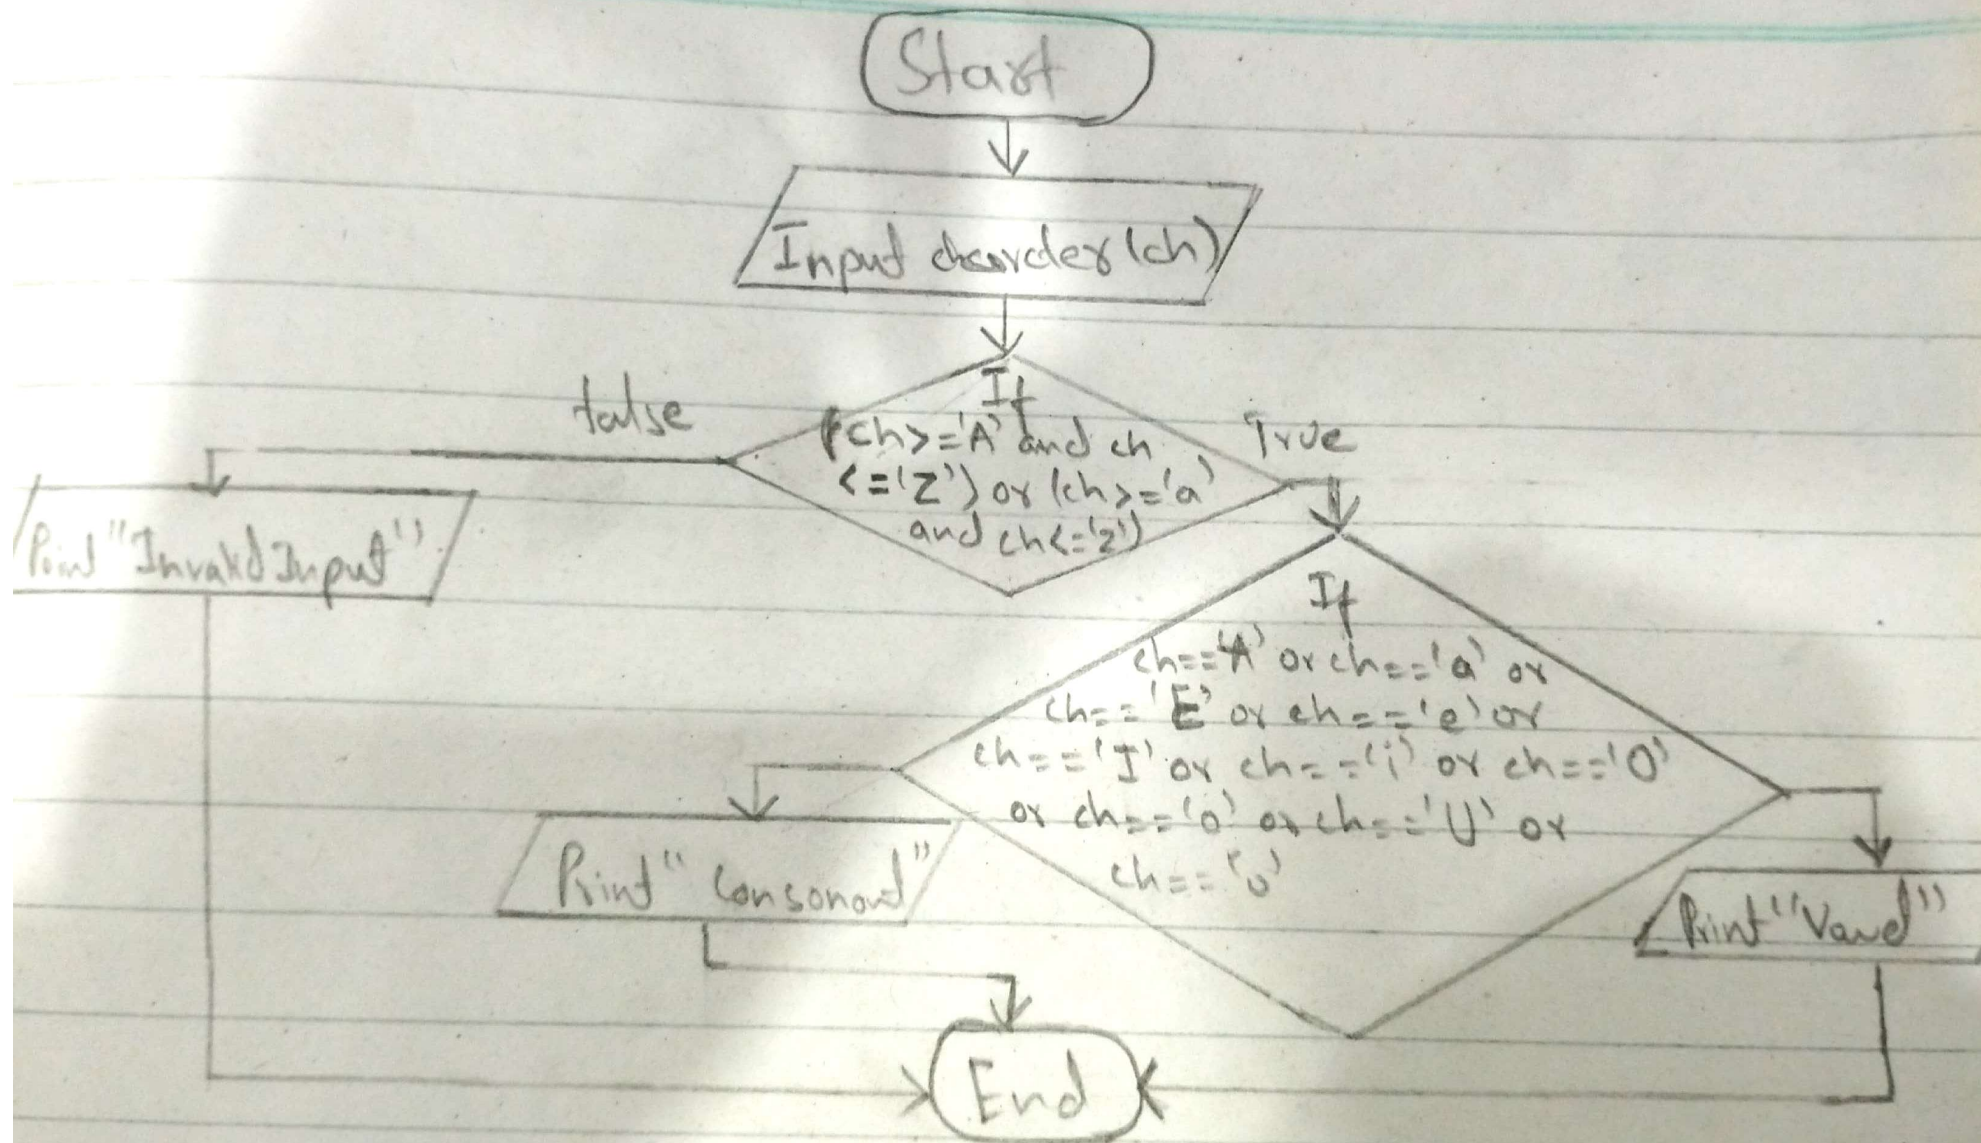 Start
Input charcter (ch)
If
(ch>='A' and ch
<='Z') or (ch>='a'
and ch<='z')
false
True
Print "Invalid Input"
If
ch=='A' or ch=='a' or
ch=='E' or ch=='e' or
ch=='I' or ch=='i' or ch=='O'
or ch=='o' or ch=='U' or
ch=='u'
Print "Consonant"
Print "Vowel"
End